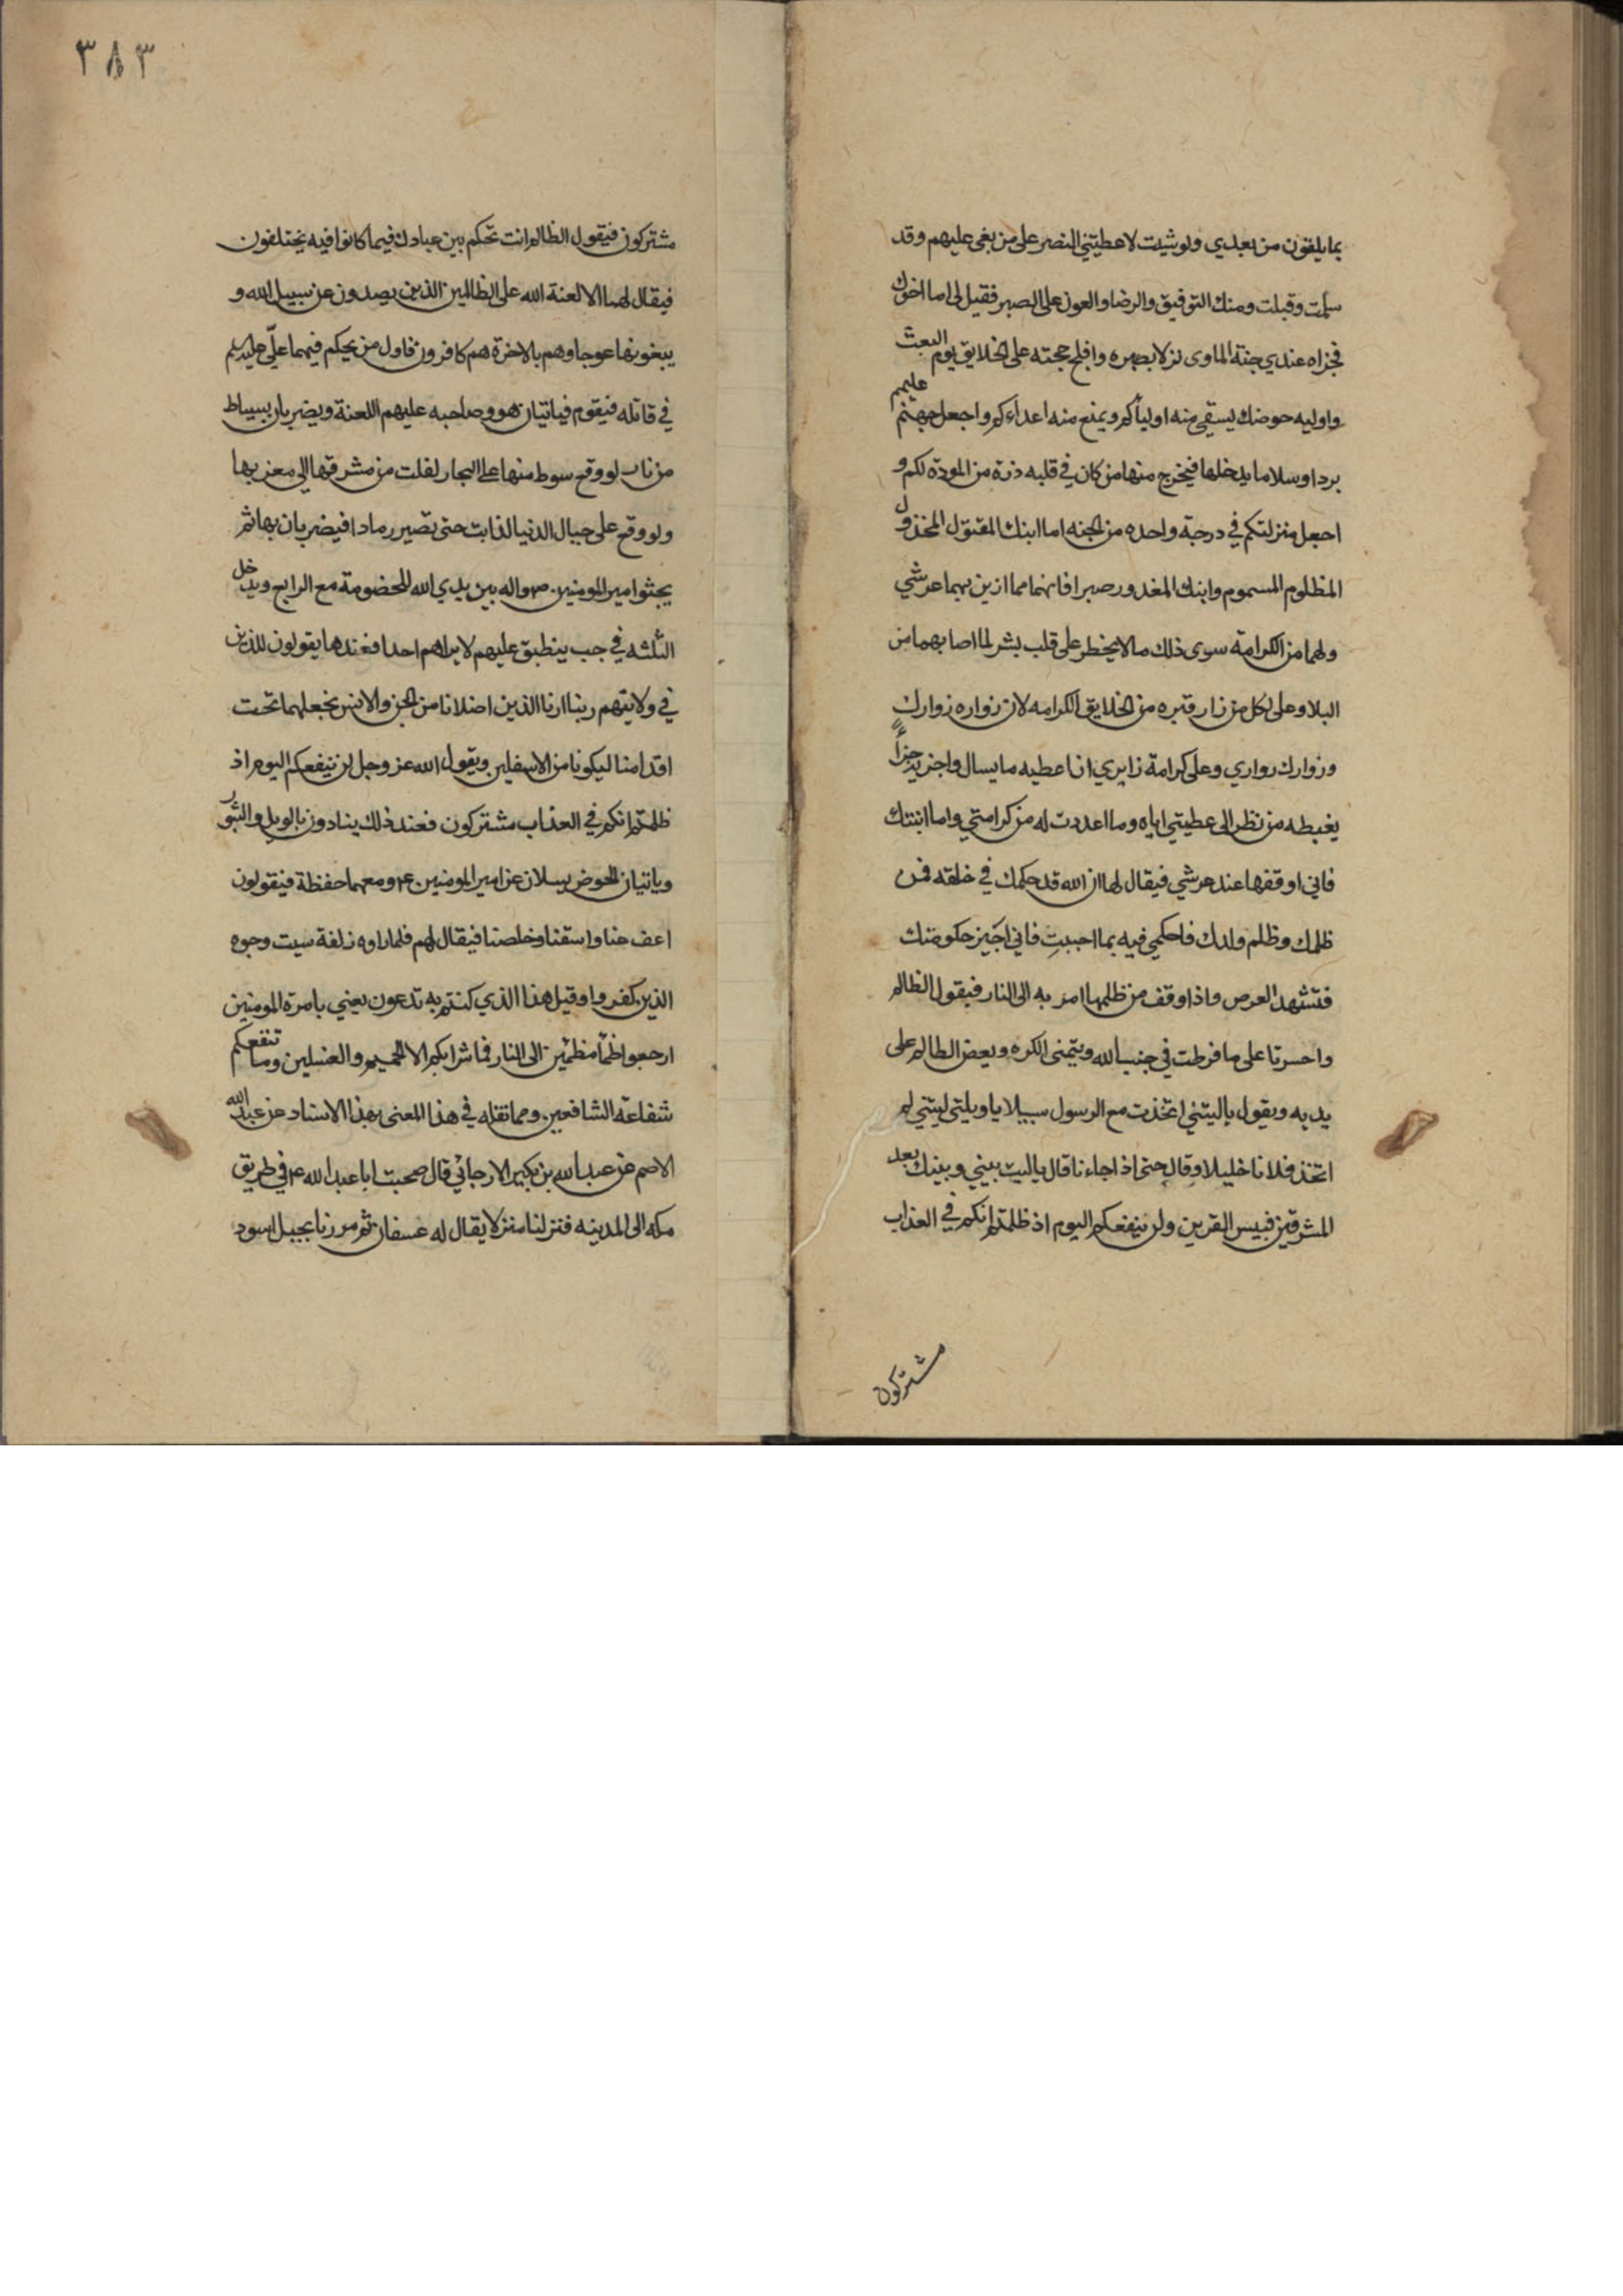 بما يلقون من بعدي ولو شيت لاعطيتني النصر على من بغى عليهم وقد
سلمت وقبلت ومنك التوفيق والرضا والعون على الصبر فقيل لي اما اخوك
فجزاه عندي جنة الماوى نزلا بصبره وافلح حجته على الخلايق يوم البعث
واوليه حوضك يسقي منه اولياكم ويمنع منه اعداءكم واجعل جهنم عليهم
بردا وسلاما يدخلها فيخرج منها من كان في قلبه ذرة من المودة لكم و
اجعل منزلتكم في درجة واحده من الجنه اما ابنك المقتول المخذول
المظلوم المسموم وابنك المغدور صبرا فانهما مما ازين بهما عرشي
ولهما من الكرامة سوى ذلك ما لا يخطر على قلب بشر لما اصابهما من
البلا وعلى لكل من زار قبره من الخلايق الكرامه لان زواره زوارك
وزوارك زواري وعلى كرامة زايري انا عطيه ما يسال واجزيه جزاً
يغبطه من نظر الى عطيتي اياه وما اعددت له من كرامتي واما ابنتك
فاني اوقفها عند عرشي فيقال لها ان الله قد حكمك في خلقه فمن
ظلمك وظلم ولدك فاحكمي فيه بما احببت فاني اجيز حكومتك
فتشهد العرص واذا اوقف من ظلمها امر به الى النار فيقول الظالم
واحسرتا على ما فرطت في جنب الله ويتمنى الكره ويعض الظالم على
يديه ويقول ياليتني اتخذت مع الرسول سبيلا يا ويلتى ليتني لم
اتخذ فلانا خليلا وقال حتى اذا جاءنا قال ياليت بيني وبينك بعد
المشرقين فبيس القرين ولن ينفعكم اليوم اذ ظلمتم انكم في العذاب
مشتركون
٣٨٣
مشتركون فيقول الظالم انت تحكم بين عبادك فيما كانوا فيه يختلفون
فيقال لهما الا لعنة الله على الظالمين الذين يصدون عن سبيل الله و
يبغونها عوجا وهم بالاخرة هم كافرون فاول من يحكم فيهما علّي
في قاتله فيقوم فياتيان هو وصاحبه عليهم اللعنة ويضربان بسياط
من نار لو وقع سوط منها على البحار لغلت من مشرقها الى مغربها
ولو وقع على جبال الدنيا لذابت حتى تصير رمادا فيضربان بها ثم
يجثوا امير المومنين ص واله بين يدي الله للخصومة مع الرابع ويدخل
الثلثه في جب ينطبق عليهم لا يراهم احد فعندها يقولون للذين
في ولايتهم ربنا ارنا الذين اضلانا من الجن والانس نجعلهما تحت
اقدامنا ليكونا من الاسفلين ويقول الله عز وجل لن ينفعكم اليوم اذ
ظلمتم انكم في العذاب مشتركون فعند ذلك ينادون بالويل والثبور
وياتيان الحوض يسلان عن امير المومنين ع ومعهما حفظة فيقولون
اعف عنا واسقنا وخلصنا فيقال لهم فلما راوه زلفة سيت وجوه
الذين كفروا وقيل هذا الذي كنتم به تدعون يعني بامرة المومنين
ارجعوا ظمآ مظمئين الى النار فما شرابكم الا الحميم والغسلين وما تنفعكم
شفاعة الشافعين ومما نقله في هذا المعنى بهذا الاسناد عن عبد الله
الاصم عن عبد الله بن بكير الارجائي قال صحبت ابا عبد الله ع في طريق
مكه الى المدينه فنزلنا منزلا يقال له عسفان ثم مررنا بجبل اسود